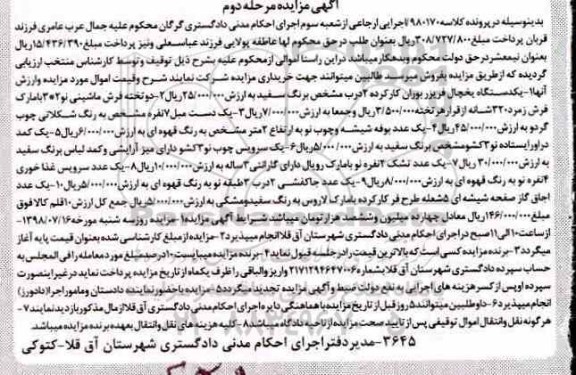 آگهی مزایده مرحله دوم
بدینوسیله در پرونده کلاسه 980170/اجرایی ارجاعی از شعبه سوم اجرای احکام مدنی دادگستری گرگان محکوم علیه جمال عرب عامری فرزند
قربان پرداخت مبلغ 308/727/800ریال بعنوان طلب در حق محکوم لها عاطفه پولایی فرزند عباسعلی ونیز پرداخت مبلغ 15/436/390ریال
بعنوان نیمعشر در حق دولت محکوم وبدهکار میباشد در این راستا اموالی از محکوم علیه بشرح ذیل توقیف و توسط کارشناس منتخب ارزیابی
گردیده که از طریق مزایده بفروش میرسد طالبین میتوانند جهت خریداری مزایده شرکت نمایند شرح وقیمت اموال مورد مزایده وارزش
آنها 1-یکدستگاه یخچال فریزر بوران کارکرده 2درب مشخص برنگ سفید به ارزش 25/000/000ریال 2-دوتخته فرش ماشینی نو 2*3بامارک
فرش زمرد 320شانه از قرار هر تخته 3/500/000ریال وجمعا به ارزش 7/000/000ریال 3-یک دست مبل 7نفره مشخص به رنگ شکلاتی چوب
گردو به ارزش 45/000/000ریال 4-یک عدد بوفه شیشه وچوب نو به ارتفاع 2متر مشخص به رنگ قهوه ای به ارزش 6/000/000ریال 5-یک کمد
دراور ایستاده نو 3کشو مشخص برنگ سفید به ارزش 5/000/000ریال 6-یک سرویس چوب نو 3کشو دارای میز آرایشی وکمد لباس برنگ سفید
به ارزش 30/000/000 ریال 7-یک عدد تشک 2نفره نو بامارک رویال دارای گارانتی 3ساله به ارزش 10/000/000ریال 8-یک عدد سرویس غذا خوری
4نفره نو به رنگ قهوه ای به ارزش 8/000/000ریال 9-یک عدد جاکفشی 2درب 3طبقه نو به رنگ قهوه ای به ارزش 5/000/000ریال 10-یک عدد
اجاق گاز صفحه شیشه ای 5شعله طرح فر کارکرده بامارک لاروس به رنگ سفید ومشکی به ارزش 5/000/000ریال جمع کل ارزش 10قلم کالا فوق
مبلغ 146/000/000ریال معادل چهارده میلیون وششصد هزار تومان میباشد شرایط آگهی مزایده 1-مزایده روز سه شنبه مورخه 1398/07/16
از ساعت 10الی 11صبح در اجرای احکام مدنی دادگستری شهرستان آق قلا انجام میپذیرد 2-مزایده از مبلغ کارشناسی شده بعنوان قیمت پایه آغاز
میگردد 3-برنده مزایده کسی است که بالاترین قیمت را در جلسه قبول نماید 4-برنده مزایده میبایست 10درصد مبلغ مورد معامله را فی المجلس به
حساب سپرده دادگستری شهرستان آق قلا بشماره 2171294647006 واریز والباقی را ظرف یکماه از تاریخ مزایده پرداخت نماید در غیر اینصورت
سپرده او پس از کسر هزینه های اجرایی به نفع دولت ضبط و آگهی مزایده تجدید میگردد 5-مزایده با حضور نماینده دادستان ومامور اجرا (دادورز)
انجام میپذیرد 6-داوطلبین میتوانند 5روز قبل از تاریخ مزایده با هماهنگی دایره اجرای احکام مدنی دادگستری آق قلا از مال مذکور بازدید نمایند 7-
هر گونه نقل وانتقال اموال توقیفی پس از تایید صحت مزایده از ناحیه دادگاه میباشد 8-کلیه هزینه های نقل وانتقال بعهده برنده مزایده میباشد.
3645-مدیر دفتر اجرای احکام مدنی دادگستری شهرستان آق قلا-کتوکی